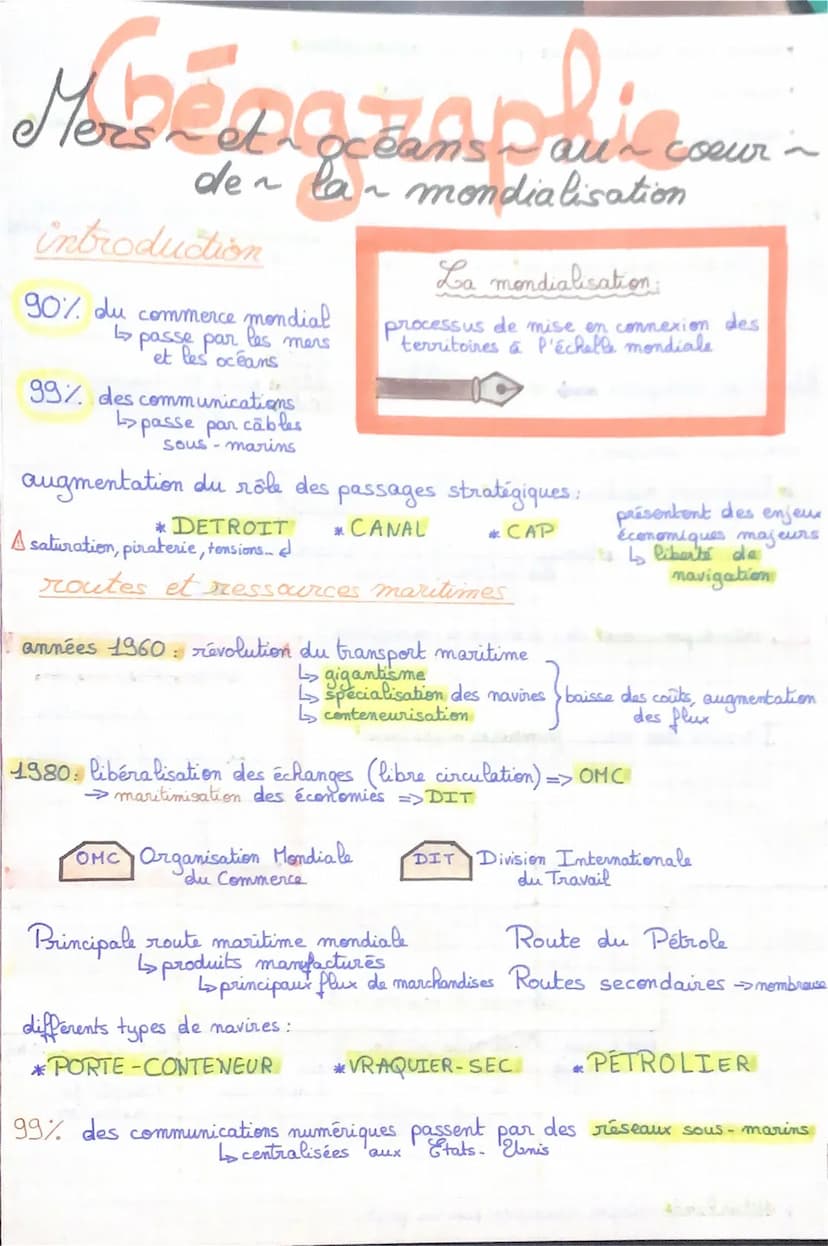 Géographie
Mers ~ et ~ océans ~ au ~ coeur ~
de ~ la ~ mondialisation
introduction
90% du commerce mondial
↳ passe par les mers
et les océans
99% des communications
↳ passe par câbles
sous-marins
La mondialisation:
processus de mise en connexion des
territoires à l'échelle mondiale
augmentation du rôle des passages stratégiques:
* DETROIT * CANAL * CAP
⚠ saturation, piraterie, tensions... ↲
présentent des enjeux
économiques majeurs
↳ liberté de
navigation
routes et ressources maritimes
années 1960 : révolution du transport maritime
↳ gigantisme
↳ spécialisation des navires
↳ conteneurisation
baisse des coûts, augmentation
des flux
1980: libéralisation des échanges (libre circulation) => OMC
→ maritimisation des économies => DIT
OMC Organisation Mondiale
du Commerce
DIT Division Internationale
du Travail
Principale route maritime mondiale
↳ produits manufacturés
↳ principaux flux de marchandises
Route du Pétrole
Routes secondaires → nombreuse
différents types de navires :
* PORTE-CONTENEUR * VRAQUIER-SEC * PÉTROLIER
99% des communications numériques passent par des réseaux sous-marins
↳ centralisées aux États-Unis